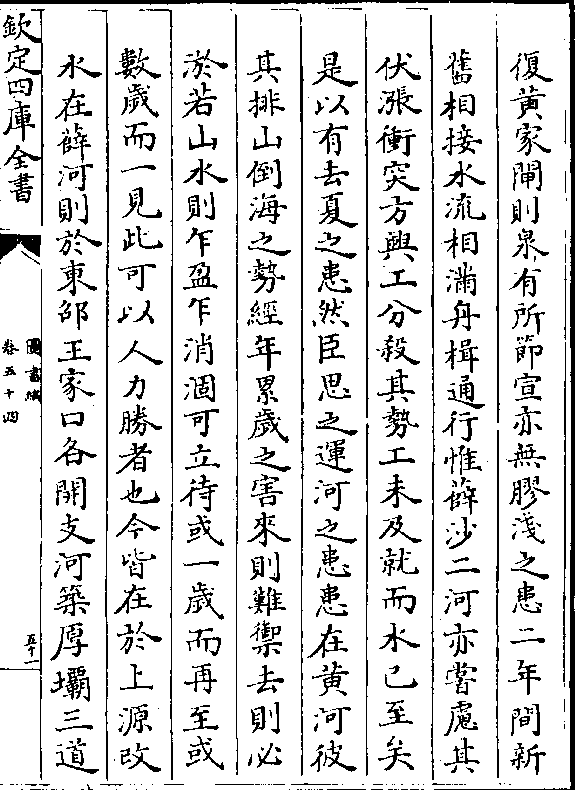 復黄家閘則泉有所節宣亦無膠淺之患二年間新
舊相接水流相滿舟楫通行惟薛沙二河亦嘗慮其
伏漲衝突方興工分殺其勢工未及就而水已至矣
是以有去夏之患然臣思之運河之患患在黄河彼
其排山倒海之勢經年累歲之害來則難禦去則必
淤若山水則乍盈乍消涸可立待或一歲而再至或
數歲而一見此可以人力勝者也今皆在於上源改
水在薛河則於東邵王家口各開支河築厚壩三道
欽定四庫全書
圖書編
卷五十四
五十一